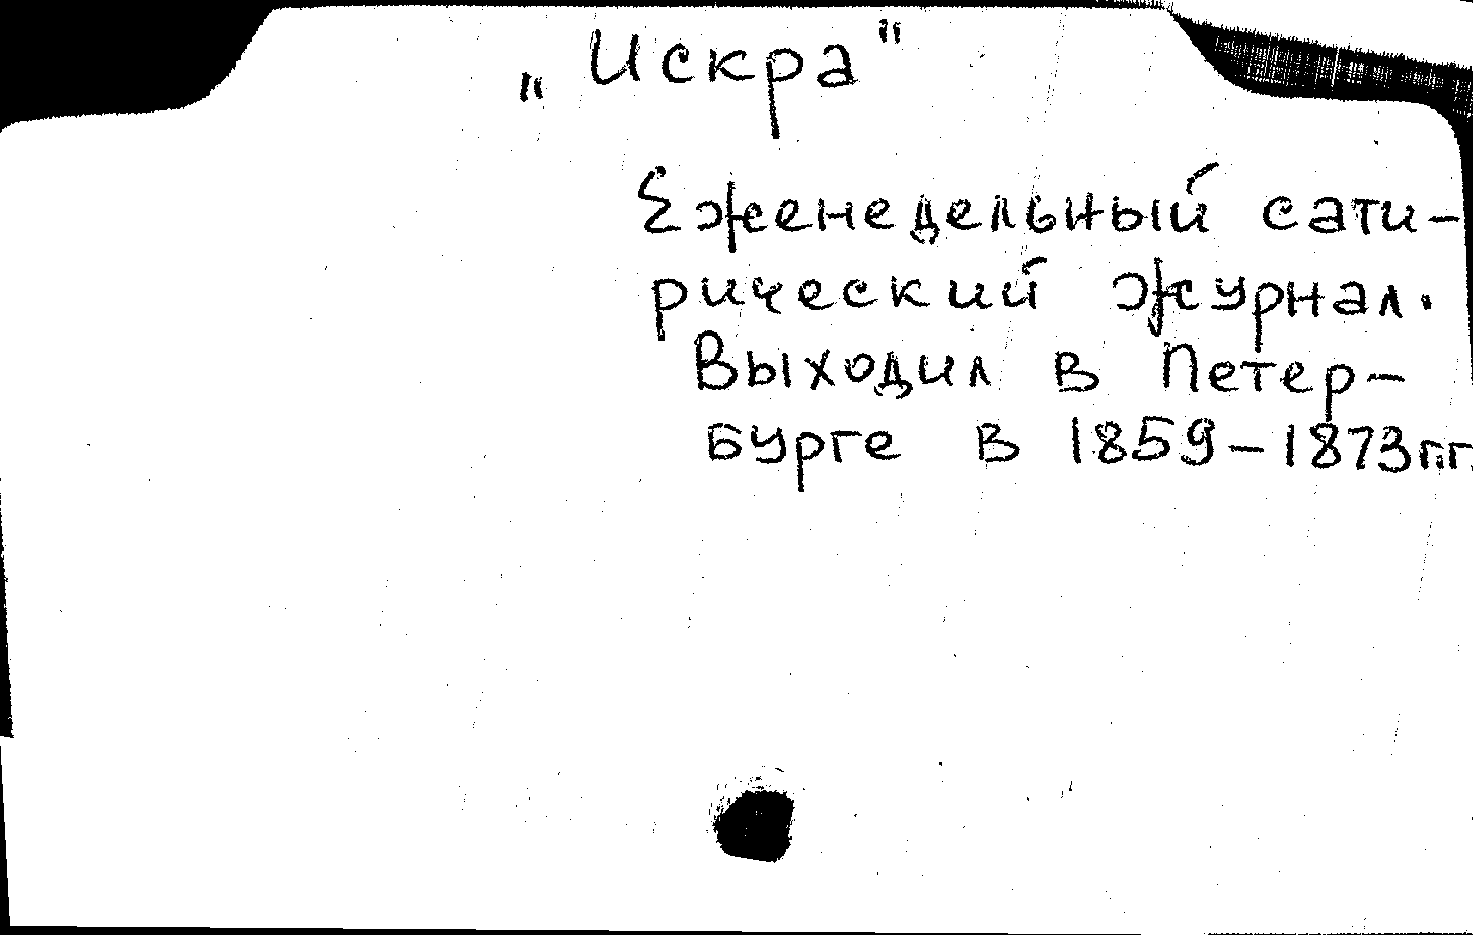 „Искра"
Еженедельный сати-
рический журнал.
Выходил в Петер-
бурге в 1859-1873гг.